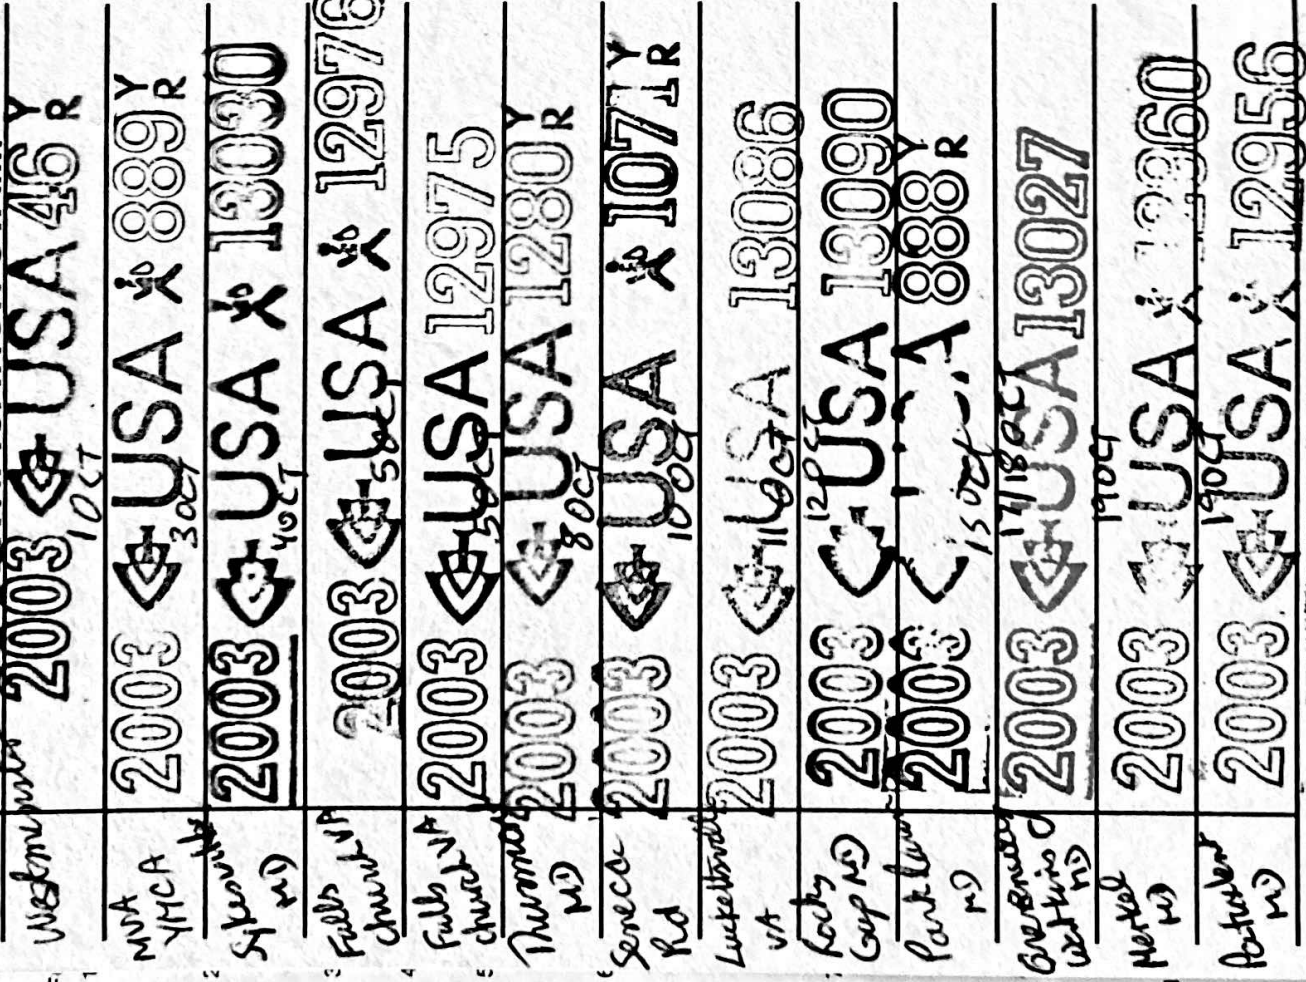 2003 USA 46 YR
1 OCT
MVA YMCA
2003 USA 889 YR
3 OCT
Sykesville MD
2003 USA 13030
4 OCT
Falls Church VA
2003 USA 12976
5 OCT
Falls Church VA
2003 USA 12975
5 OCT
MD
2003 USA 1280 YR
8 OCT
Seneca Rd
2003 USA 1071 YR
10 OCT
VA
2003 USA 13086
11 OCT
Rocky Gap MD
2003 USA 13090
12 OCT
Park Lawn MD
2003 A 888 YR
15 OCT
Watkins MD
2003 USA 13027
17/18 OCT
Merkel MD
2003 USA 12960
19 OCT
Patuxent MD
2003 USA 12956
19 OCT